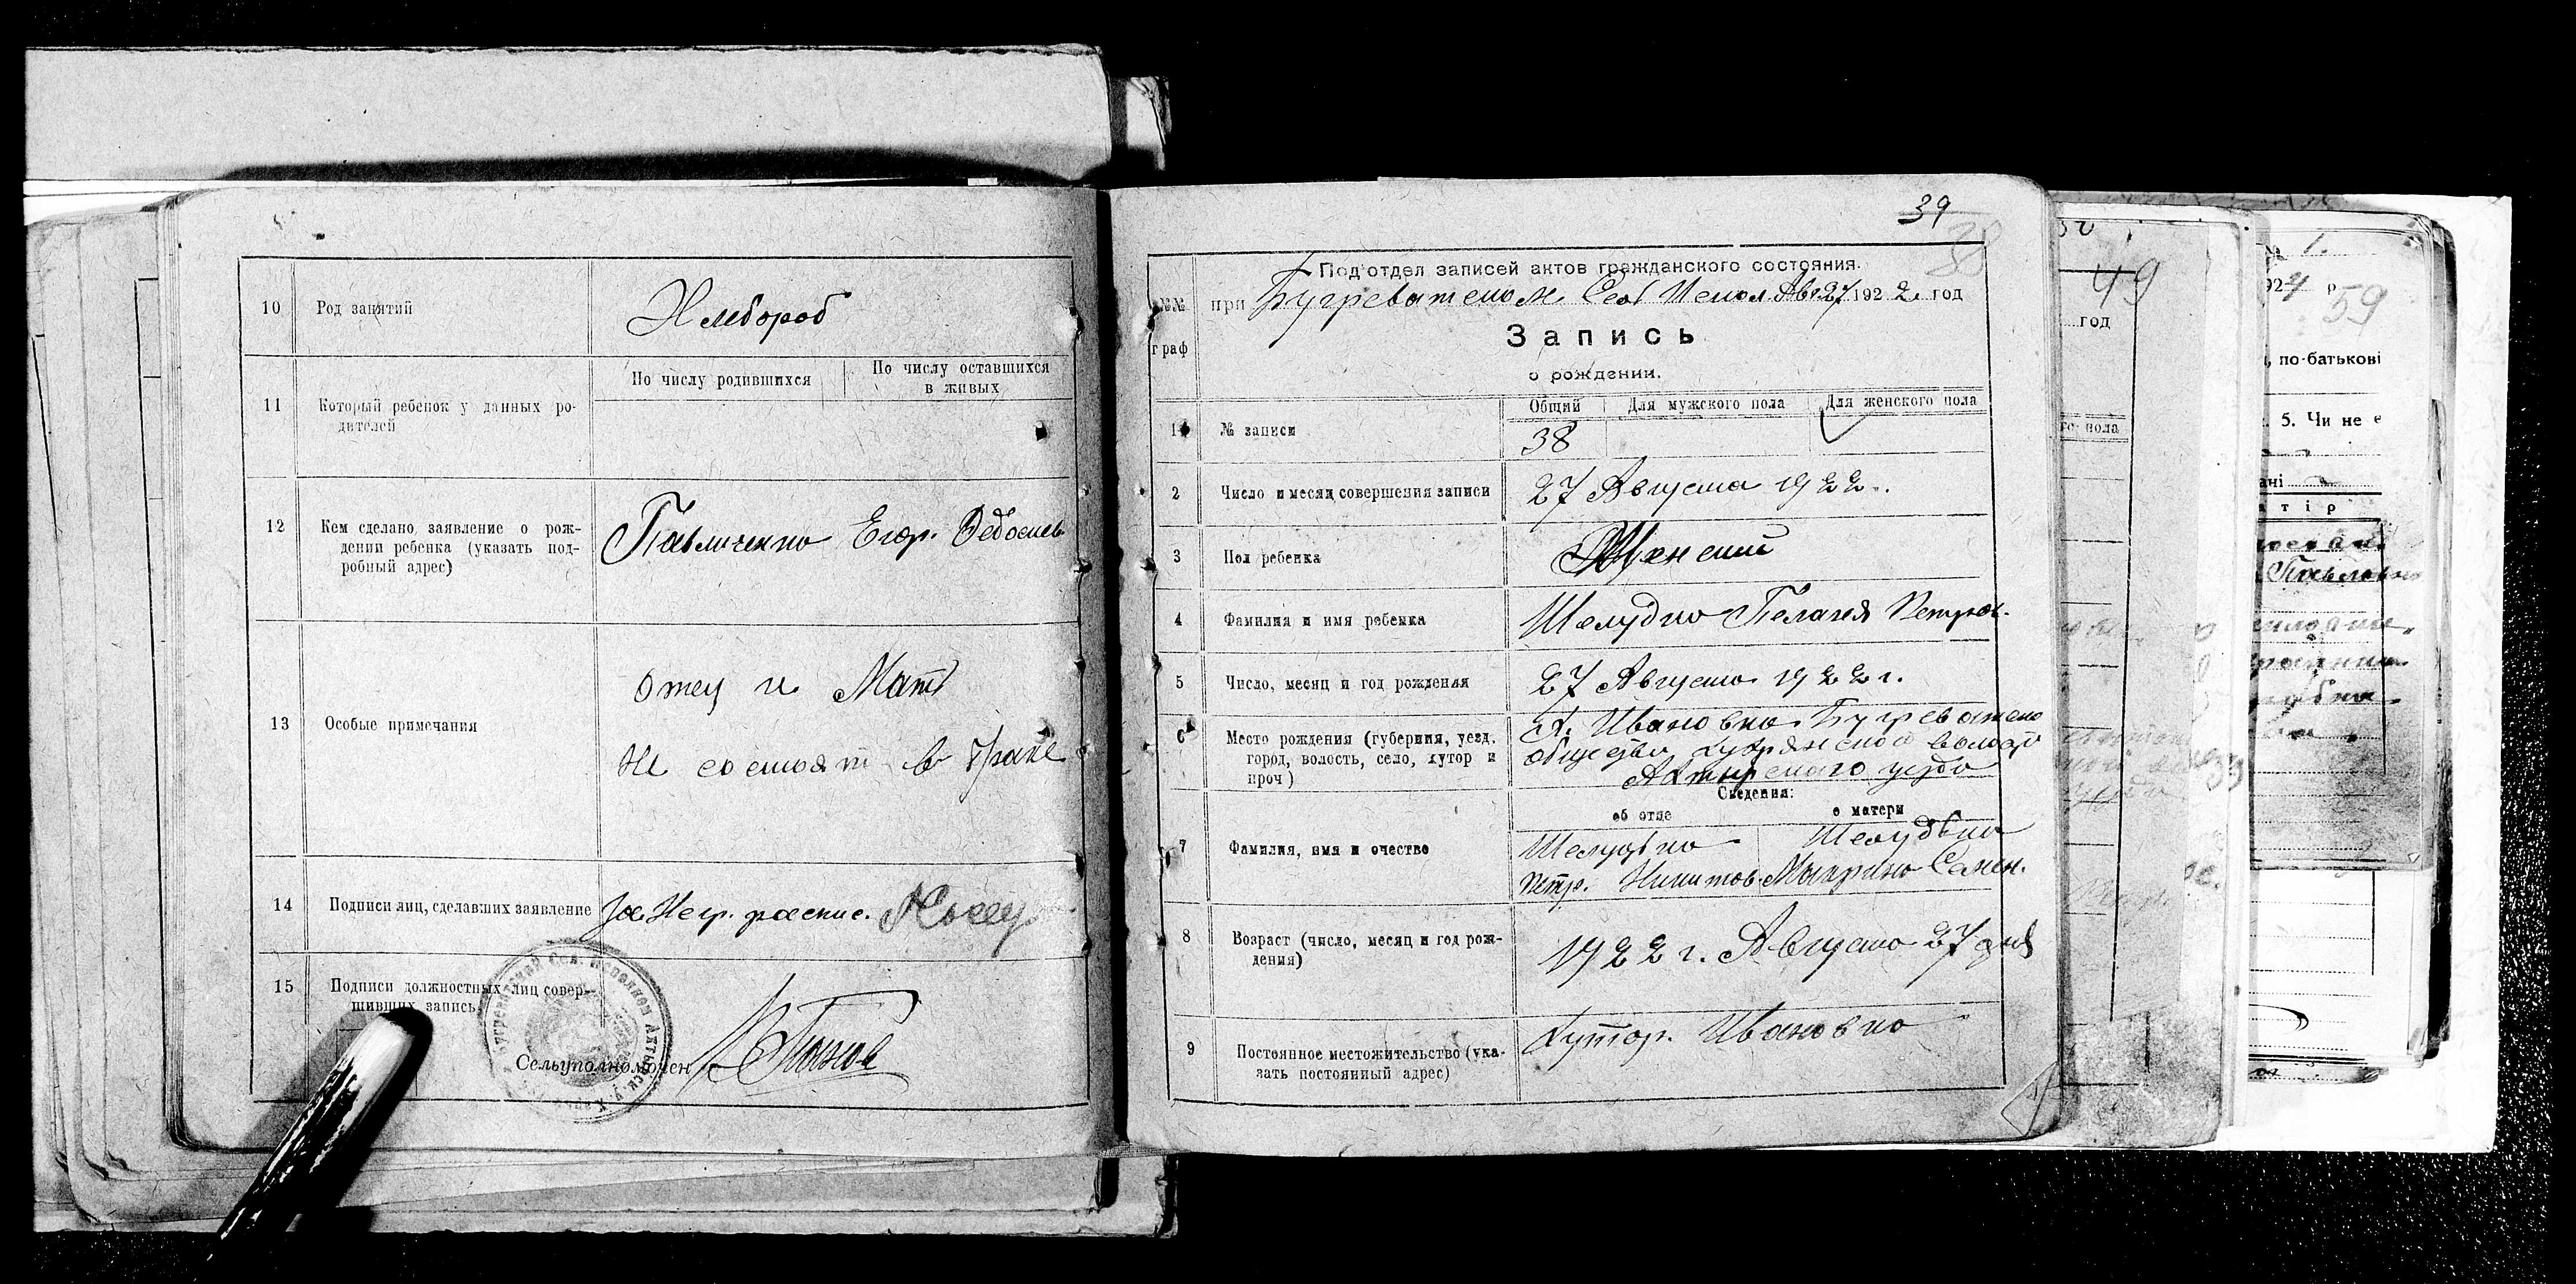 10 Род занятий Хлебороб
По числу родившихся По числу оставшихся в живых
11 Который ребенок у данных ро-
дителей
12 Кем сделано заявление о рож-
дении ребенка (указать под-
робный адрес)
Павличенко Егор. Федосиев.
13 Особые примечания
Отец и Мать
не состоят в браке
14 Подписи лиц, сделавших заявление За Негр. распис.
15 Подписи должностных лиц совер-
шивших запись
Сельуполномочен
39
Под'отдел записей актов гражданского состояния.
№№ граф
при Бугреватском Сел Испол Ав 27 1922 год
Запись
о рождении.
Общий Для мужского пола Для женского пола
1 № записи 38
2 Число и месяц совершения записи 27 Августа 1922.
3 Пол ребенка Женский
4 Фамилия и имя ребенка Шелудко Пелагея Петров.
5 Число, месяц и год рождения 27 Августа 1922 г.
6 Место рождения (губерния, уезд,
город, волость, село, хутор и
проч)
х. Ивановка Бугреватско
общества волости
Ахтырского уезда
Сведения:
об отце о матери
7 Фамилия, имя и очество
Шелудько Шелудько
Петр. Никитов. Марина Семен.
8 Возраст (число, месяц и год рож-
дения)
1922 г. Августа 27 дня
9 Постоянное местожительство (ука-
зать постоянный адрес)
Хутор. Ивановка
49
год
59
по-батькові
5. Чи не є